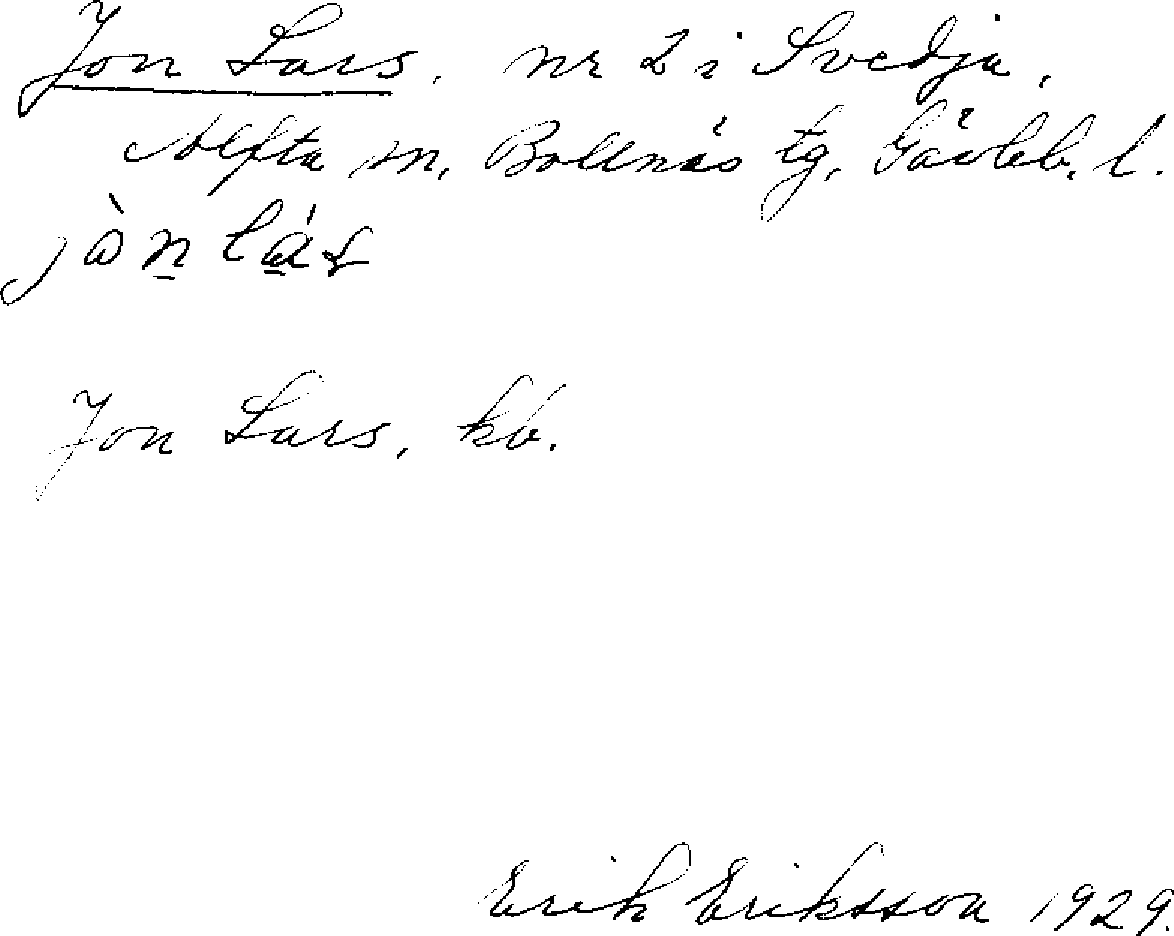 Jon Lars, nr 2 i Svedja,
Alfta sn, Bollnäs tg, Gävleb. l.
jòn lás
Jon Lars, kb.
Erik Eriksson 1929.